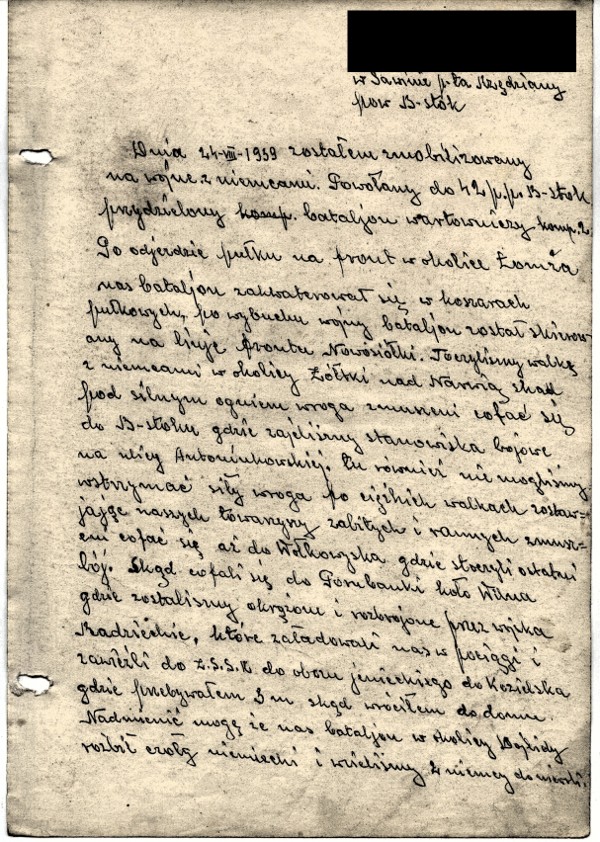 w Sawinie p-ta Rzędziany
pow B-stok
Dnia 24-VIII-1939 zostałem zmobilizowany
na wojnę z niemcami. Powołany do 42 p.p. B-stok
przydzielony komp. bataljon wartowniczy komp. 2.
Po odjeździe pułku na front w okolice Łomża
nas bataljon zakwaterował się w koszarach
pułkowych, po wybuchu wojny bataljon został skierow
any na linję frontu Nowosiółki. Toczyliśmy walkę
z niemcami w okolicy Żółtki nad Narwią skąd
pod silnym ogniem wroga zmuszeni cofać się
do B-stoku gdzie zajeliśmy stanowiska bojowe
na ulicy Antoniukowskiej. Tu również nie mogliśmy
wstrzymać siły wroga po ciężkich walkach zostaw=
jając naszych towarzyszy zabitych i rannych zmusz=
eni cofać się aż do Wołkowyska gdzie stoczyli ostatni
bój. Skąd cofali się do koło Wilna
gdzie zostaliśmy okrążone i rozbrojone przez wojka
Radzieckie, które załadowali nas w pociągi i
zawieźli do Z.S.S.R do obozu jenieckiego do Kozielska
gdzie przebywałem 3 m. skąd wróciłem do domu.
Nadmienić mogę że nas bataljon w okolicy Dojlidy
rozbił czołg niemiecki i wzieliśmy 2 niemcy do niewoli.